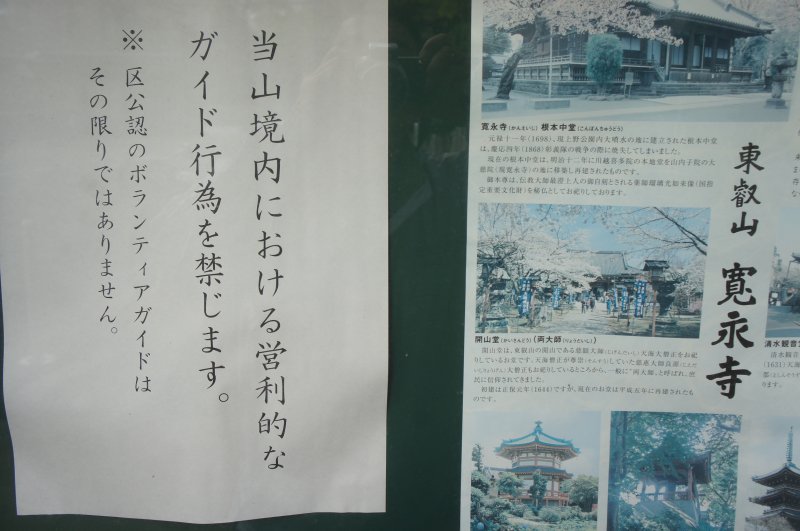 当山境内における営利的な
ガイド行為を禁じます。
※ 区公認のボランティアガイドは
その限りではありません。
東叡山 寛永寺
寛永寺(かんえいじ) 根本中堂(こんぽんちゅうどう)
元禄十一年(1698)、現上野公園内大噴水の地に建立された根本中堂
は、慶応四年(1868)彰義隊の戦争の際に焼失してしまいました。
現在の根本中堂は、明治十二年に川越喜多院の本地堂を山内子院の大
慈院(現寛永寺)の地に移築し再建されたものです。
御本尊は、伝教大師最澄上人の御自刻とされる薬師瑠璃光如来像(国指
定重要文化財)を秘仏としてお祀りしております。
開山堂(かいさんどう)〔両大師(りょうだいし)〕
開山堂は、東叡山の開山である慈眼大師(じげんだいし)天海大僧正をお祀
りしているお堂です。天海僧正が尊崇(そんすう)していた慈恵大師良源(じえだい
しりょうげん)大僧正もお祀りしているところから、一般に"両大師"と呼ばれ、庶
民に信仰されてきました。
初建は正保元年(1644)ですが、現在のお堂は平成五年に再建されたも
のです。
清水観音堂
清水観音
(1631)天海